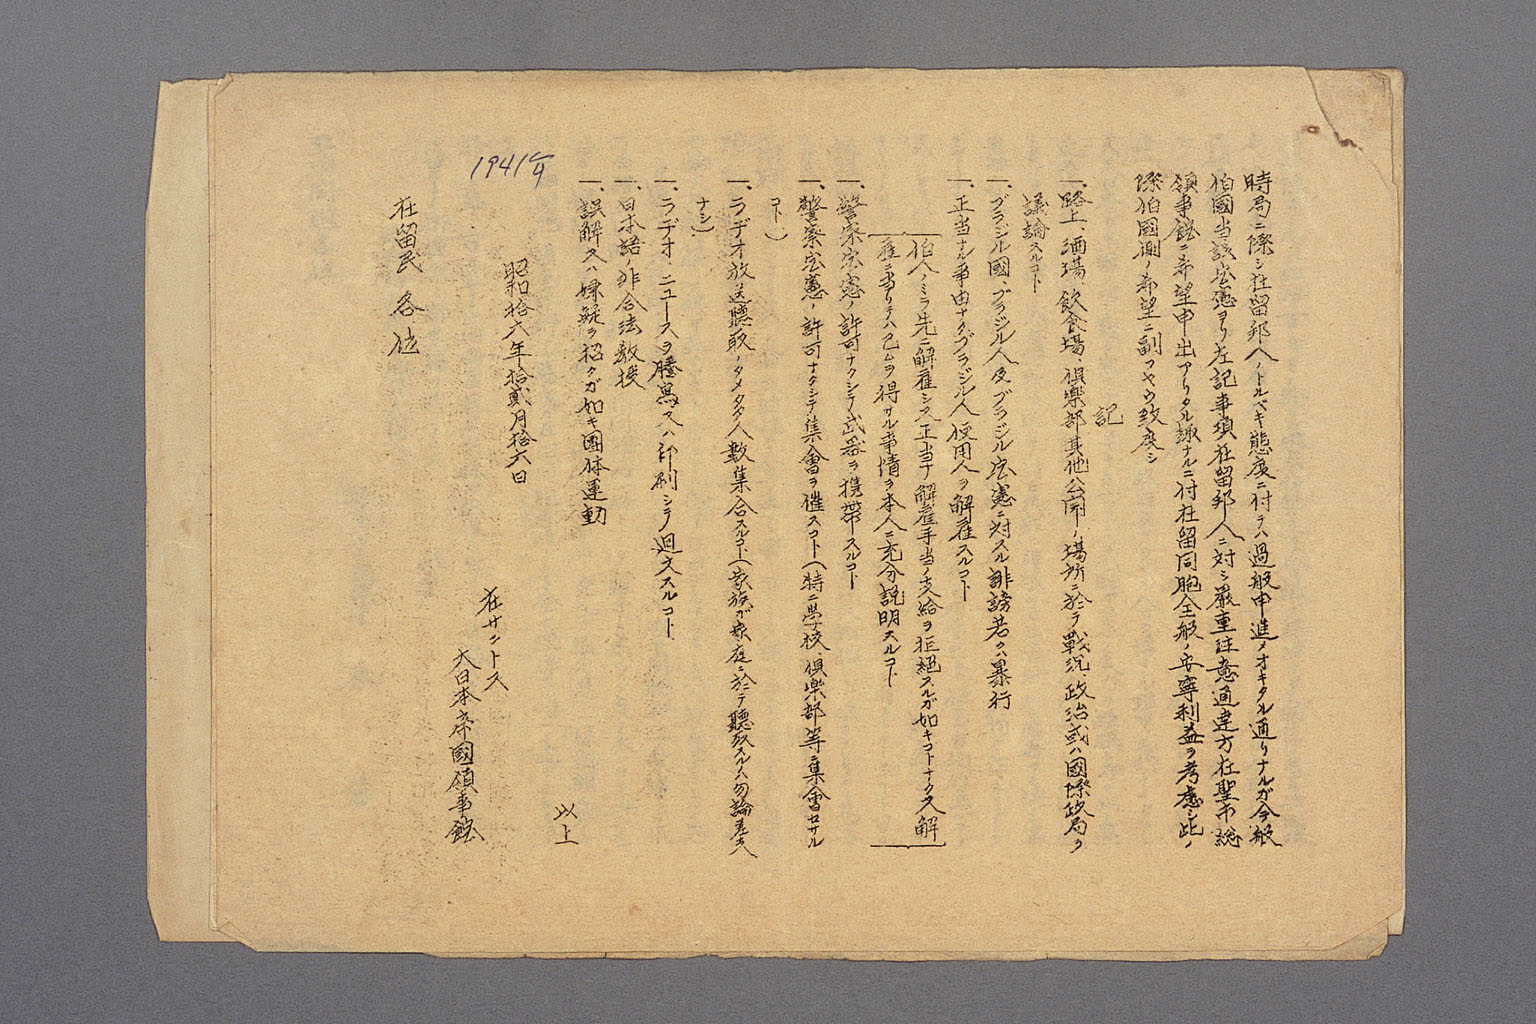 時局ニ際シ在留邦人ノトルベキ態度ニ付テハ過般申進メオキタル通リナルガ今般
伯國当該官憲ヨリ左記事項在留邦人ニ対シ嚴重注意通達方在聖市総
領事館ニ希望申出アリタル趣ナルニ付在留同胞全般ノ安寧利益ヲ考慮シ此ノ
際伯國側ノ希望ニ副フヤウ致度シ
記
一、路上、酒場、飲食場、倶楽部其他公開ノ場所ニ於テ戰況、政治或ハ國際政局ヲ
議論スルコト
一、ブラジル國、ブラジル人及ブラジル官憲ニ対スル誹謗若クハ暴行
一、正当ナル事由ナクブラジル人使用人ヲ解雇スルコト
伯人ノミヲ先ニ解雇シ又正当ナ解雇手当ノ支給ヲ拒絕スルガ如キコトナク又解
雇ニ当リテハ已ムヲ得サル事情ヲ本人ニ充分説明スルコト
一、警察官憲ノ許可ナクシテ武器ヲ携帯スルコト
一、警察官憲ノ許可ナクシテ集會ヲ催スコト（特ニ學校、倶楽部等ニ集會セサル
コト）
一、ラヂオ放送聽取ノタメ多人数集合スルコト（家族ガ家庭ニ於テ聽取スルハ勿論差支
ナシ）
一、ラヂオ、ニュースヲ謄寫又ハ印刷シテ廻文スルコト
一、日本語ノ非合法教授
一、誤解又ハ嫌疑ヲ招クガ如キ團体運動
以上
1941年
昭和拾六年拾貳月拾六日
在サントス
大日本帝國領事館
在留民 各位